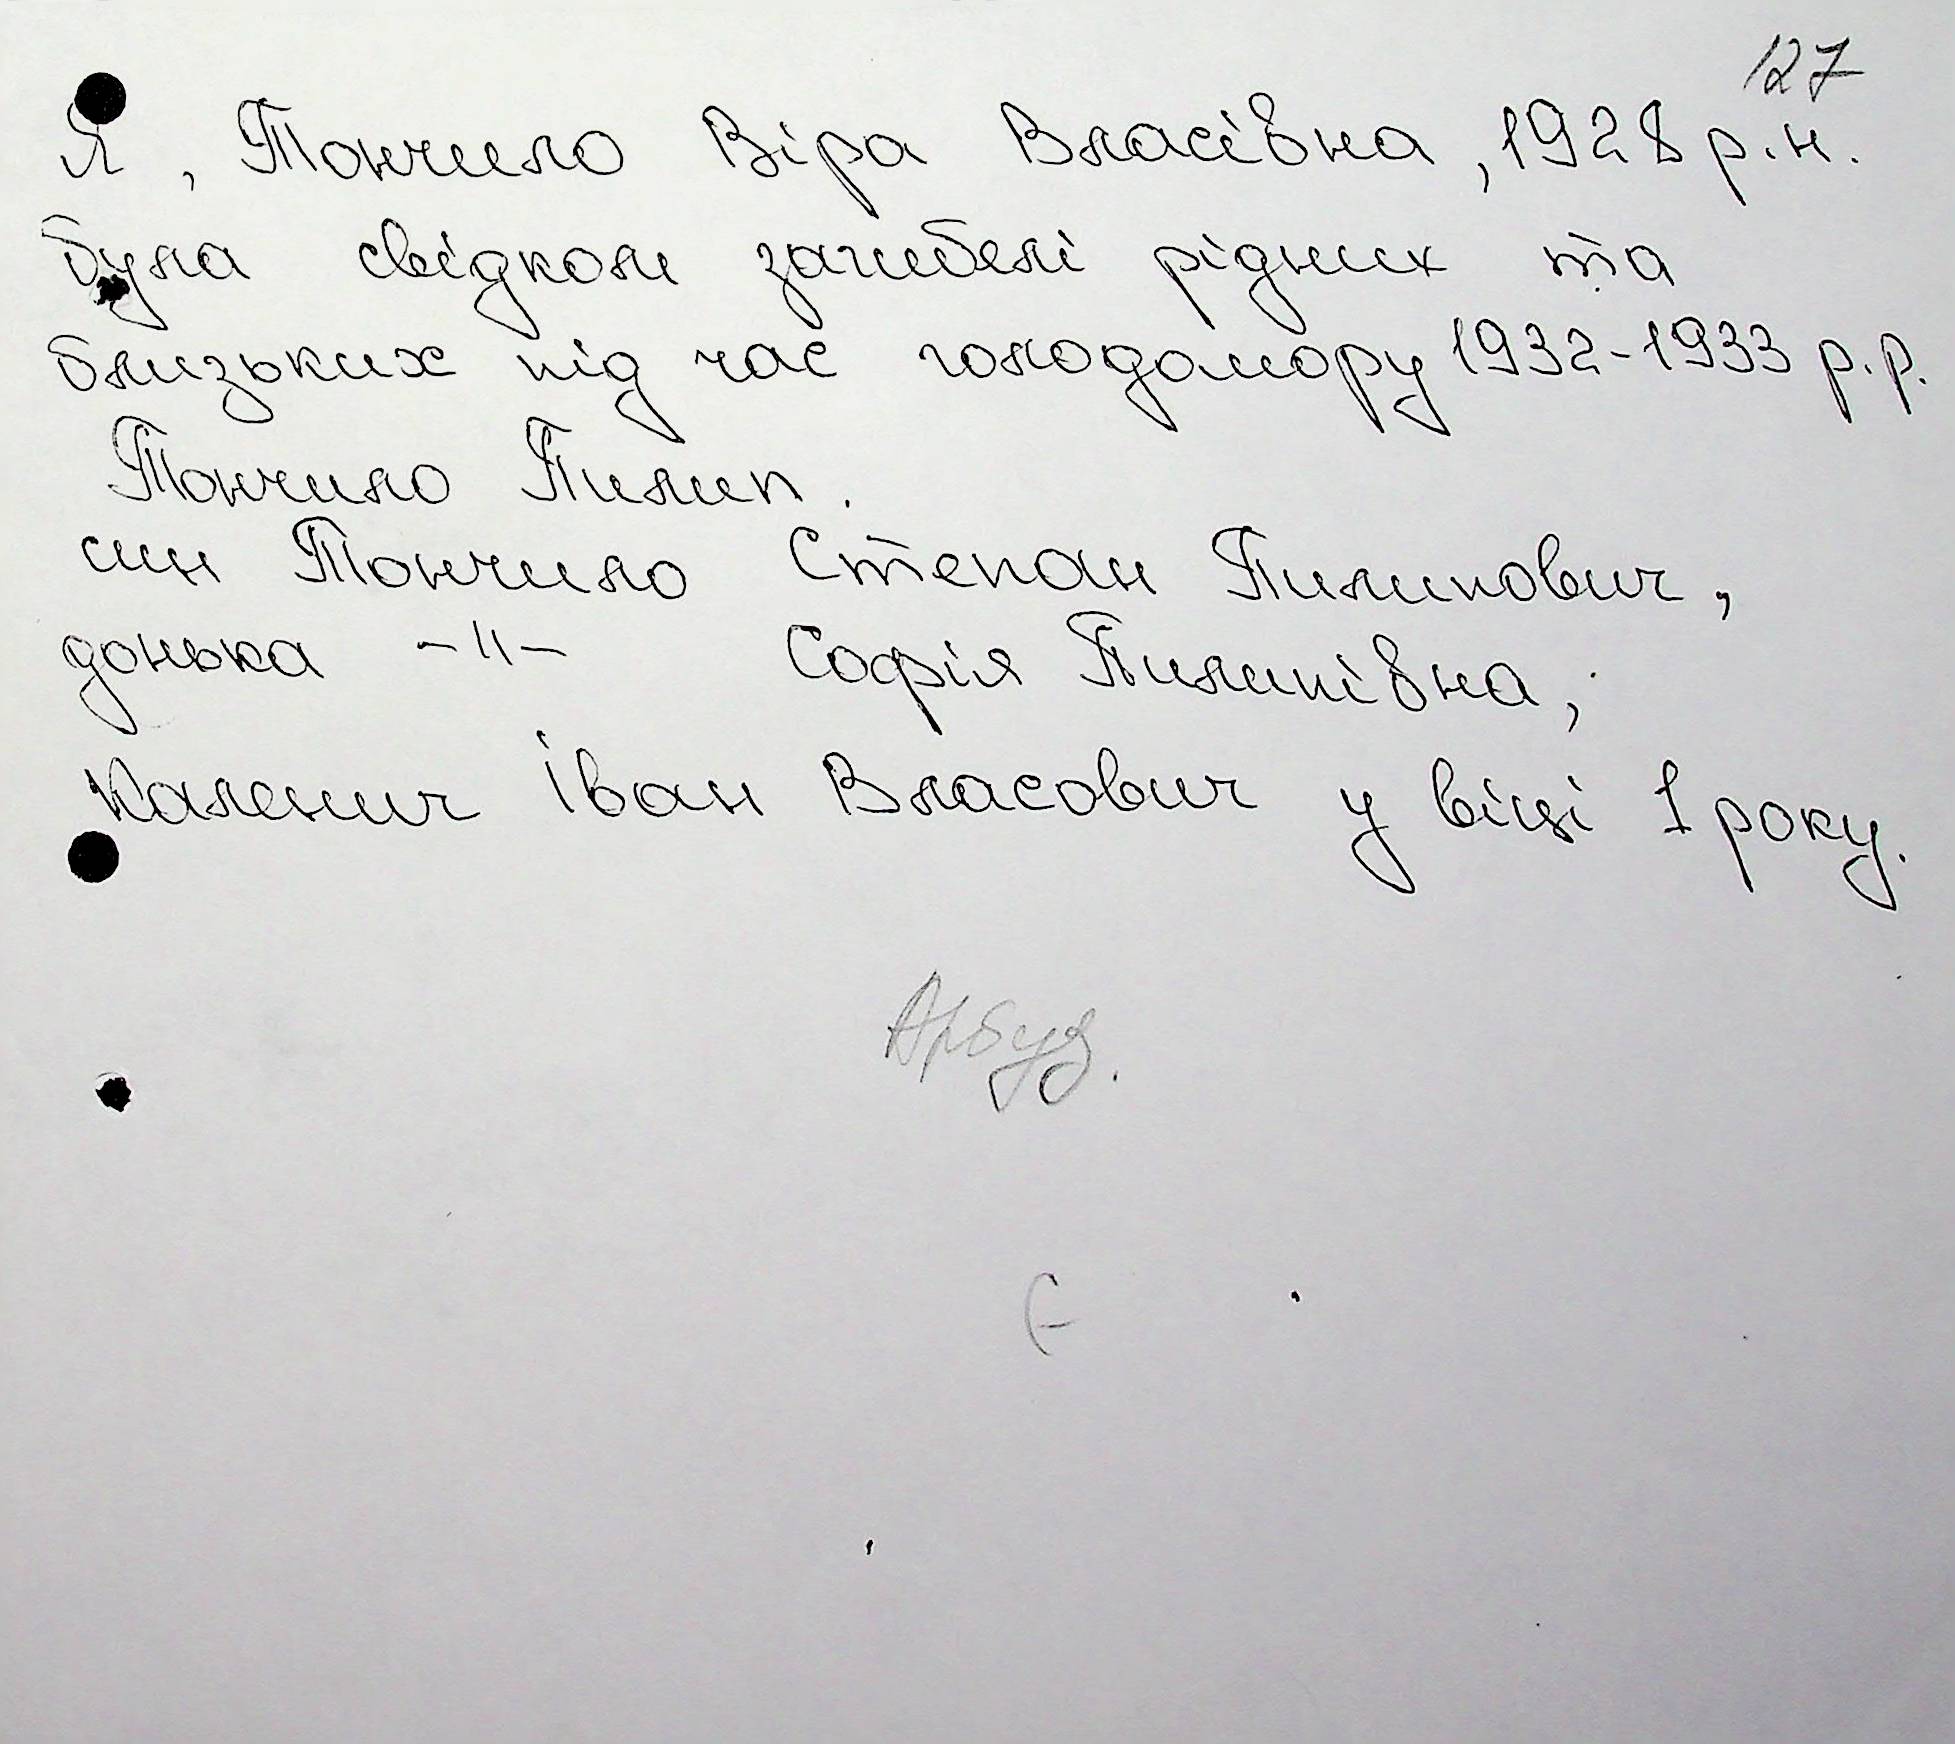 127
Я, Тончило Віра Власівна, 1928 р.н.
була свідком загибелі рідних та
близьких під час голодомору 1932-1933 р.р.
Тончило Пилип.
син Тончило Степан Пилипович,
донька -"- Софія Пилипівна;
Каленич Іван Власович у віці 1 року.